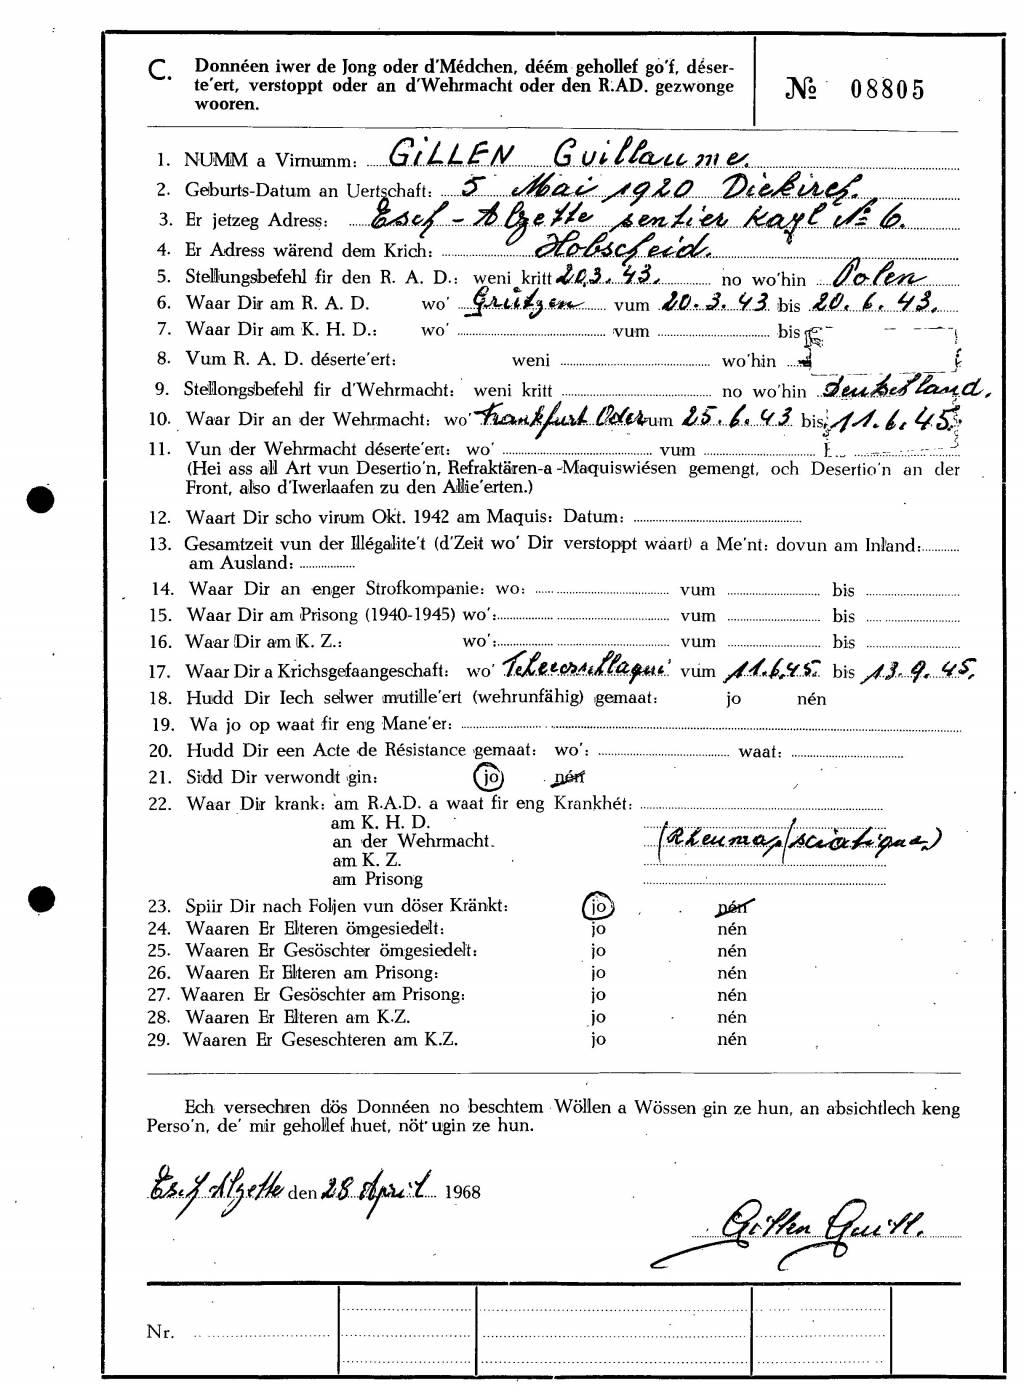 C. Donnéen iwer de Jong oder d'Médchen, déém gehollef go'f, déser-
te'ert, verstoppt oder an d'Wehrmacht oder den R.AD. gezwonge
wooren.
№ 08805
1. NUMM a Virnumm: GILLEN Guillaume.
2. Geburts-Datum an Uertschaft: 5 Mai 1920 Diekirch.
3. Er jetzeg Adress: Esch-Alzette sentier Kayl № 6.
4. Er Adress wärend dem Krich: Hobscheid.
5. Stellungsbefehl fir den R. A. D.: weni kritt 20.3.43. no wo'hin Polen
6. Waar Dir am R. A. D. wo' Grützen vum 20.3.43 bis 20.6.43.
7. Waar Dir am K. H. D.: wo' vum bis
8. Vum R. A. D. déserte'ert: weni wo'hin
9. Stellongsbefehl fir d'Wehrmacht: weni kritt no wo'hin Deutschland.
10. Waar Dir an der Wehrmacht: wo' Frankfurt Oder vum 25.6.43 bis 11.6.45.
11. Vun der Wehrmacht déserte'ert: wo' vum
(Hei ass all Art vun Desertio'n, Refraktären-a-Maquiswiésen gemengt, och Desertio'n an der
Front, also d'Iwerlaafen zu den Allie'erten.)
12. Waart Dir scho virum Okt. 1942 am Maquis: Datum:
13. Gesamtzeit vun der Illégalite't (d'Zeit wo' Dir verstoppt waart) a Me'nt: dovun am Inland:
am Ausland:
14. Waar Dir an enger Strofkompanie: wo: vum bis
15. Waar Dir am Prisong (1940-1945) wo': vum bis
16. Waar Dir am K. Z.: wo': vum bis
17. Waar Dir a Krichsgefaangeschaft: wo' vum 11.6.45. bis 13.9.45.
18. Hudd Dir Iech selwer mutille'ert (wehrunfähig) gemaat: jo nén
19. Wa jo op waat fir eng Mane'er:
20. Hudd Dir een Acte de Résistance gemaat: wo': waat:
21. Sidd Dir verwondt gin: jo nén
22. Waar Dir krank: am R.A.D. a waat fir eng Krankhét:
am K. H. D.
an der Wehrmacht. (Rheuma, sciatique.)
am K. Z.
am Prisong
23. Spiir Dir nach Foljen vun döser Kränkt: jo nén
24. Waaren Er Elteren ömgesiedelt: jo nén
25. Waaren Er Gesöschter ömgesiedelt: jo nén
26. Waaren Er Elteren am Prisong: jo nén
27. Waaren Er Gesöschter am Prisong: jo nén
28. Waaren Er Elteren am K.Z. jo nén
29. Waaren Er Geseschteren am K.Z. jo nén
Ech versechren dös Donnéen no beschtem Wöllen a Wössen gin ze hun, an absichtlech keng
Perso'n, de' mir gehollef huet, nöt ugin ze hun.
Esch Alzette den 28 April 1968
Gillen Guill.
Nr.